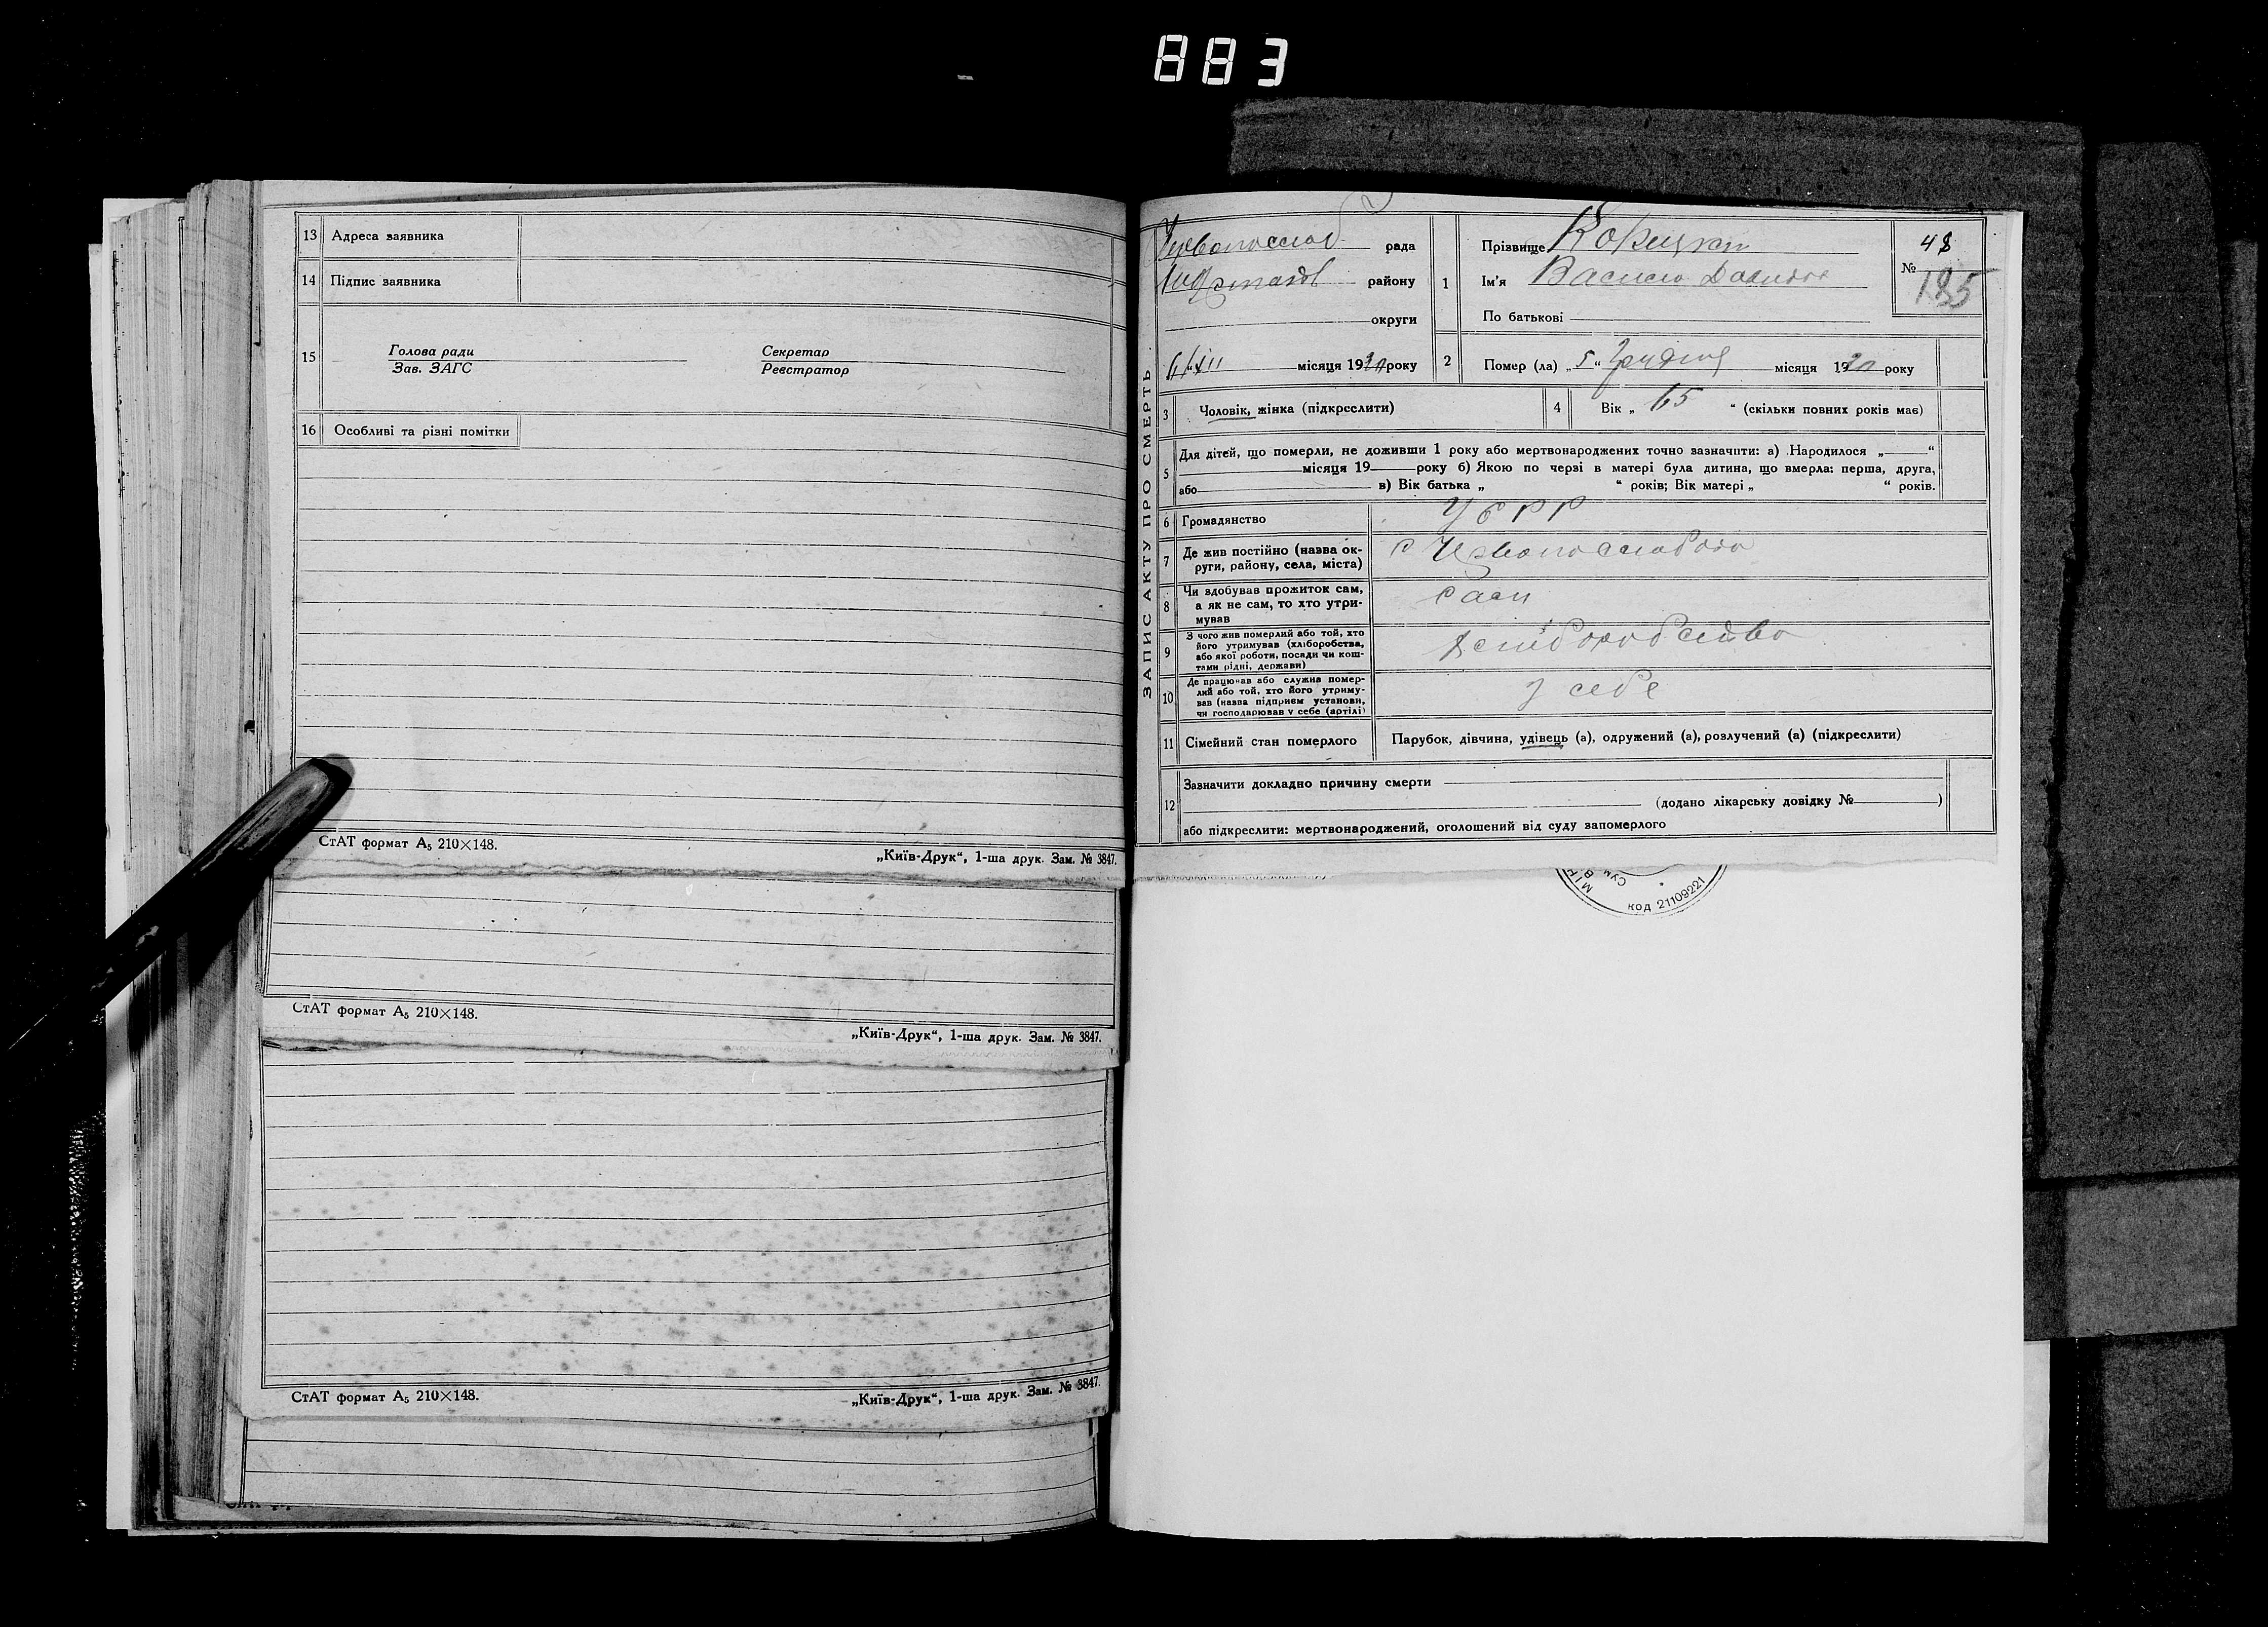 883
13 Адреса заявника
14 Підпис заявника
15 Голова ради
Зав. ЗАГС
Секретар
Реєстратор
16 Особливі та різні помітки
СтАТ формат А5 210×148.
„Київ-Друк“, 1-ша друк. Зам. № 3847.
СтАТ формат А5 210×148.
„Київ-Друк“, 1-ша друк. Зам. № 3847.
СтАТ формат А5 210×148.
„Київ-Друк“, 1-ша друк. Зам. № 3847.
ЗАПИС АКТУ ПРО СМЕРТЬ
рада
району
округи
6/XII місяця 1930 року
1 Прізвище Корецкий
Ім'я Василь
По батькові
48
№ 185
2 Помер (ла) „5“ Грудня місяця 1930 року
3 Чоловік, жінка (підкреслити)
4 Вік „65“ (скільки повних років має)
5 Для дітей, що померли, не доживши 1 року або мертвонароджених точно зазначити: а) Народилося „ “
місяця 19 року б) Якою по черзі в матері була дитина, що вмерла: перша, друга,
або в) Вік батька „ “ років; Вік матері „ “ років.
6 Громадянство УСРР
7 Де жив постійно (назва ок-
руги, району, села, міста)
8 Чи здобував прожиток сам,
а як не сам, то хто утри-
мував
сам
9 З чого жив померлий або той, хто
його утримував (хліборобства,
або якої роботи, посади чи кош-
тами рідні, держави)
10 Де працював або служив помер-
лий або той, хто його утриму-
вав (назва підприєм установи,
чи господарював у себе (артілі)
у себе
11 Сімейний стан померлого Парубок, дівчина, удівець (а), одружений (а), розлучений (а) (підкреслити)
12 Зазначити докладно причину смерти
(додано лікарську довідку № )
або підкреслити: мертвонароджений, оголошений від суду запомерлого
код 21109221